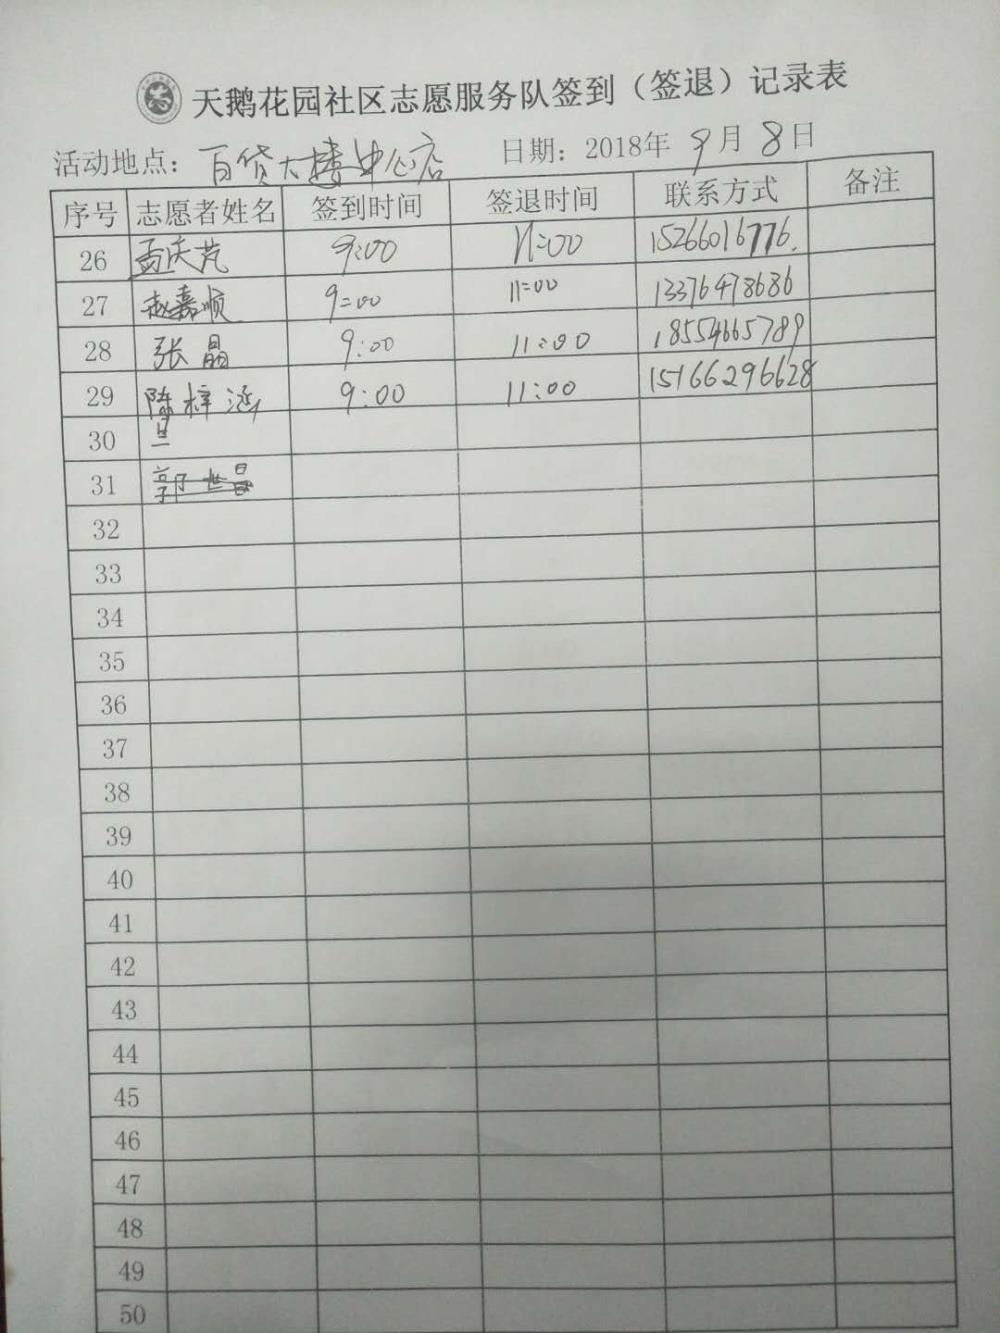 天鹅花园社区志愿服务队签到（签退）记录表
活动地点：百货大楼中心店 日期：2018年9月8日
序号 志愿者姓名 签到时间 签退时间 联系方式 备注
26 孟庆芃 9:00 11:00 15266016776.
27 赵嘉顺 9:00 11:00 13376478686
28 张晶 9:00 11:00 18554665789
29 陈梓涵 9:00 11:00 15166296628
30
31 郭世昌
32
33
34
35
36
37
38
39
40
41
42
43
44
45
46
47
48
49
50